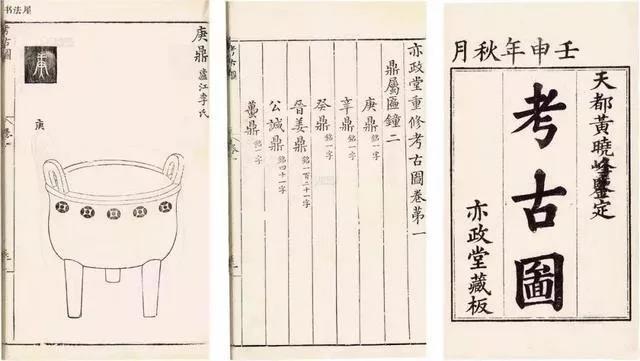 壬申年秋月
天都黃曉峰鑒定
考古圖
亦政堂藏板
亦政堂重修考古圖卷苐一
鼎屬匾鐘二
庚鼎 銘一字
辛鼎 銘一字
癸鼎 銘一字
晉姜鼎 銘一百二十一字
公諴鼎 銘四十一字
蠆鼎 銘一字
庚鼎 廬江李氏
庚
考古圖
卷一
书法屋